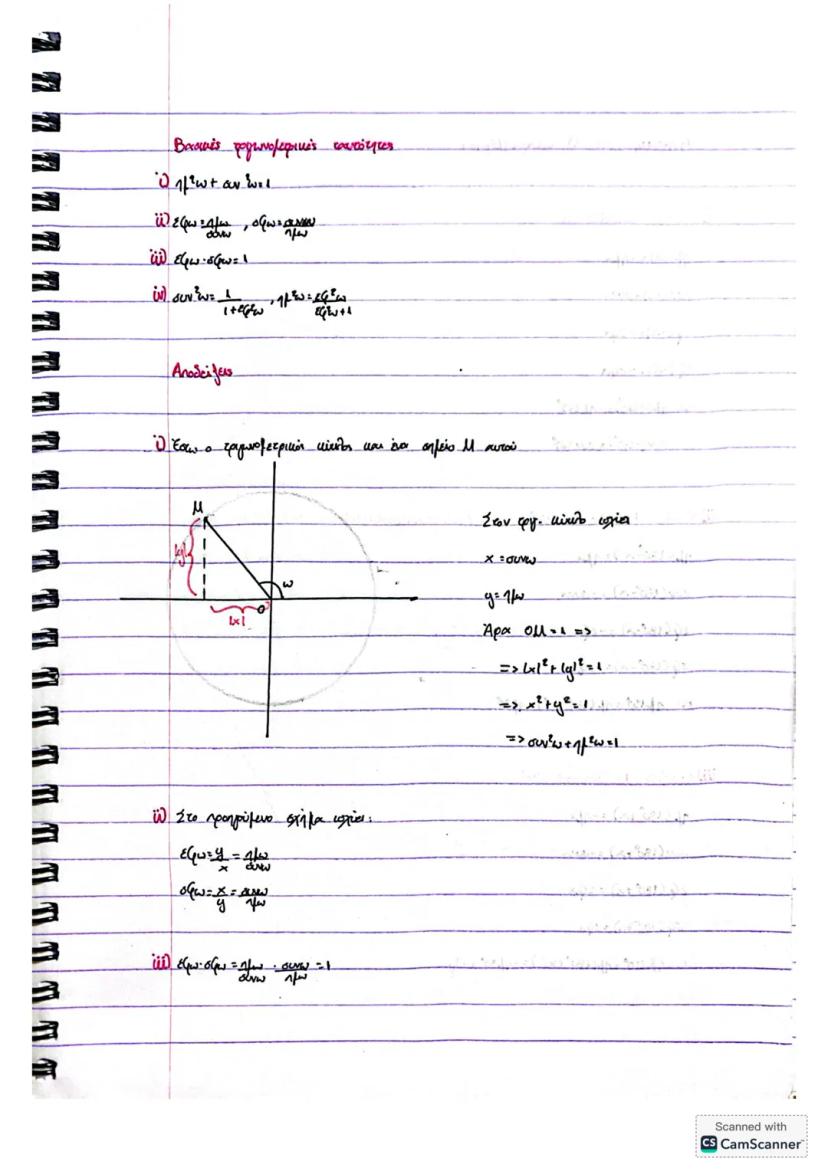 Βασικές τριγωνομετρικές ταυτότητες
i) ημ²ω + συν²ω=1
ii) εφω=ημω/συνω , σφω=συνω/ημω
iii) εφω·σφω=1
iv) συν²ω=1/1+εφ²ω , ημ²ω=εφ²ω/εφ²ω+1
Αποδείξεις
i) Έστω ο τριγωνομετρικός κύκλος και ένα σημείο Μ αυτού
Μ
|y|
ω
Ο
|x|
Στον τριγ. κύκλο ισχύει
x=συνω
y=ημω
Άρα ΟΜ=1 =>
=> |x|²+|y|²=1
=> x²+y²=1
=> συν²ω+ημ²ω=1
ii) Στο προηγούμενο σχήμα ισχύει:
εφω=y/x=ημω/συνω
σφω=x/y=συνω/ημω
iii) εφω·σφω=ημω/συνω · συνω/ημω=1
Scanned with
CS CamScanner